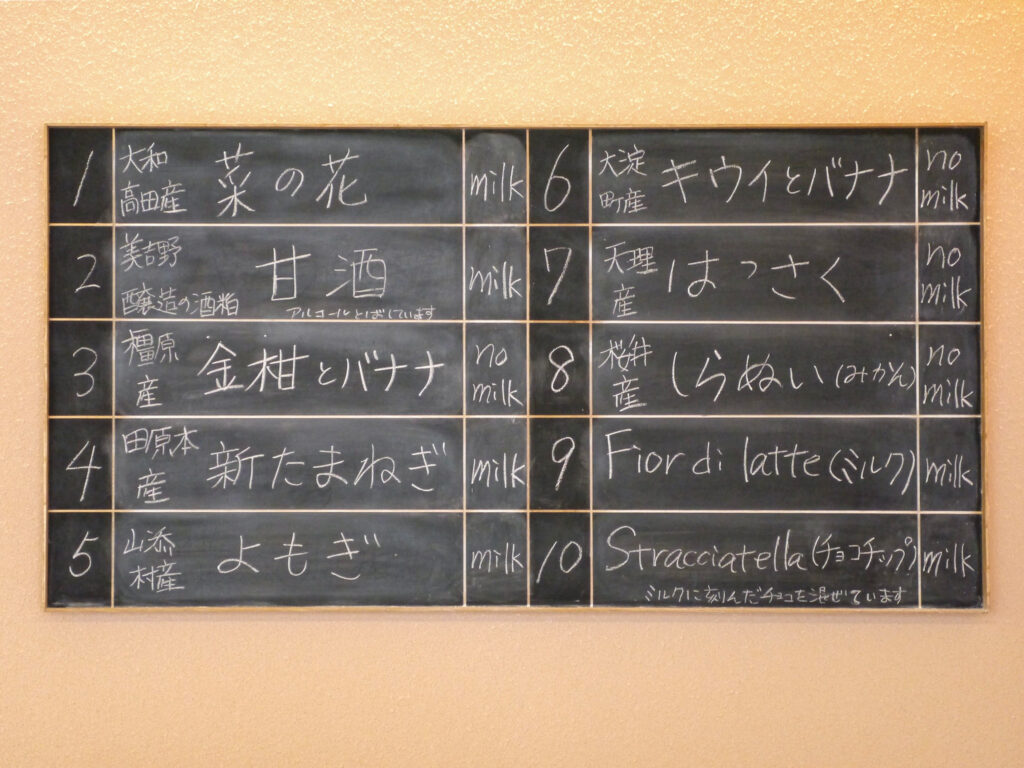 1
大和
高田産
菜の花
milk
2
美吉野
醸造の酒粕
甘酒
アルコールとばしています
milk
3
橿原
産
金柑とバナナ
no
milk
4
田原本
産
新たまねぎ
milk
5
山添
村産
よもぎ
milk
6
大淀
町産
キウイとバナナ
no
milk
7
天理
産
はっさく
no
milk
8
桜井
産
しらぬい(みかん)
no
milk
9
Fior di latte(ミルク)
milk
10
Stracciatella(チョコチップ)
ミルクに刻んだチョコを混ぜています
milk